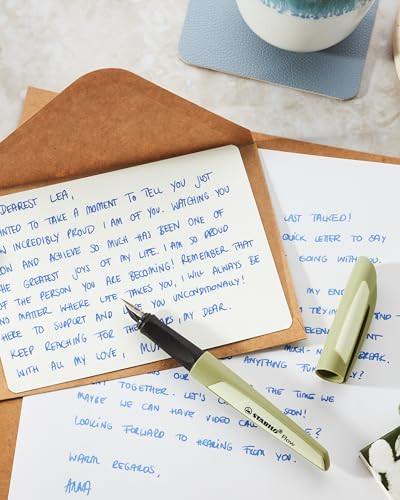 DEAREST LEA,
WANTED TO TAKE A MOMENT TO TELL YOU JUST
INCREDIBLY PROUD I AM OF YOU. WATCHING YOU
AND ACHIEVE SO MUCH HAS BEEN ONE OF
THE GREATEST JOYS OF MY LIFE. I AM SO PROUD
OF THE PERSON YOU ARE BECOMING! REMEMBER THAT
NO MATTER WHERE LIFE TAKES YOU, I WILL ALWAYS BE
HERE TO SUPPORT AND YOU UNCONDITIONALLY!
KEEP REACHING FOR THE , MY DEAR.
WITH ALL MY LOVE,
LAST TALKED!
QUICK LETTER TO SAY
GOING WITH YOU.
MY
TRYING
MUCH-
ANYTHING
TOGETHER. LET'S THE TIME WE
MAYBE WE CAN HAVE VIDEO SOON!
LOOKING FORWARD TO HEARING FROM YOU.
WARM REGARDS,
ANNA
STABILO® Flow